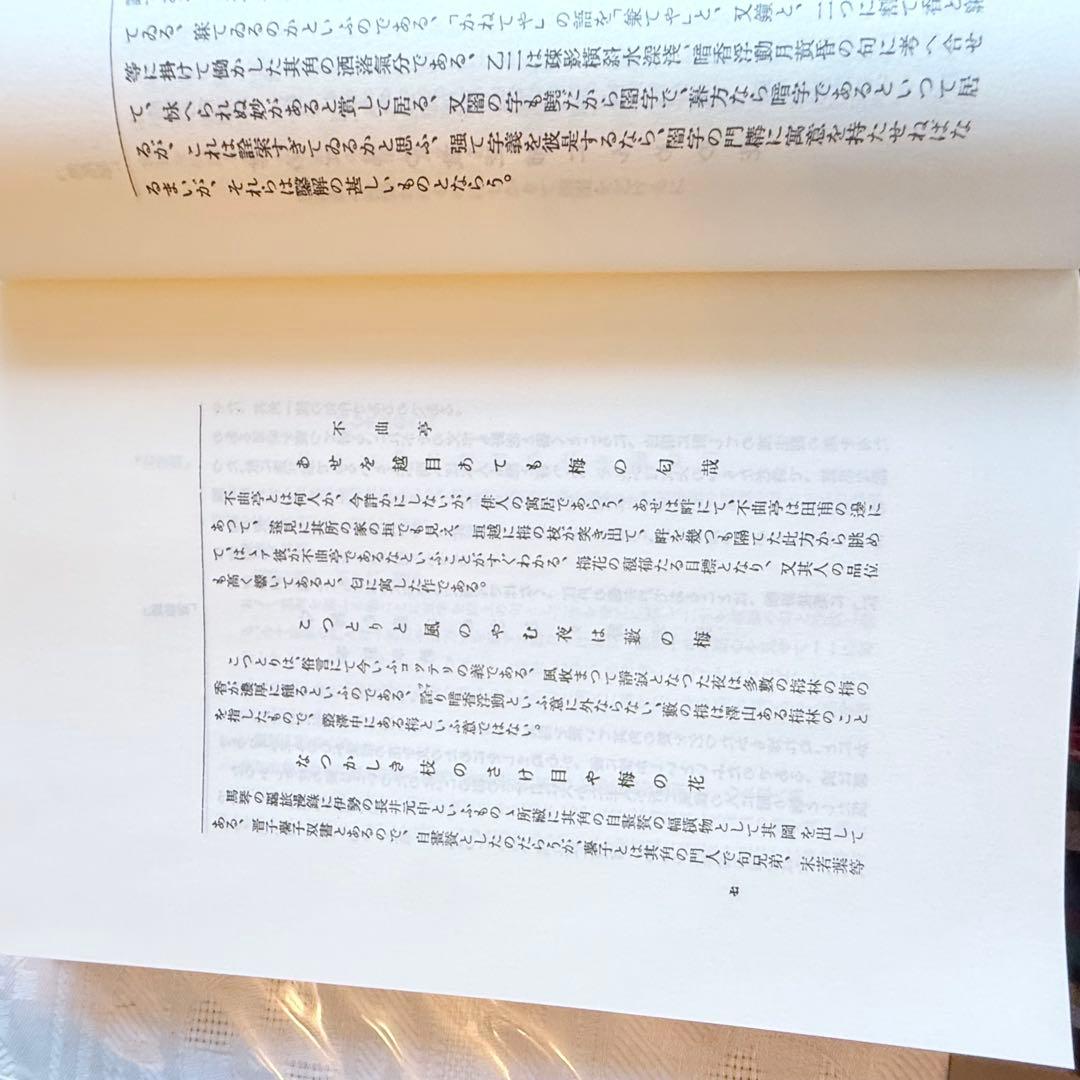 てゐる、躲てゐるのかといふのである、「かねてやし」の語を「兼てやし」と、又鏡と、二つに
等に掛けて働かした其角の洒落氣分である、乙二は疎影橫斜水深淺、暗香浮動月黄昏の句に考へ合せ
て、怺へられぬ妙があると賞して居る、又闇の字も朧だから闇字で、暮方なら暗字であるといつて居
るが、これは詮索すぎてゐるかと思ふ、强て字義を彼是するなら、闇字の門構に寓意を持たせねばな
るまいが、それらは鑿解の甚しいものとならう。
不曲亭
あせを越目あても梅の匂哉
不曲亭とは何人か、今詳かにしないが、俳人の寓居であらう、あせは畔にて、不曲亭は田甫の邊に
あつて、遠見に其所の家の垣でも見え、垣越に梅の枝が突き出て、畔を幾つも隔てた此方から眺め
て、はゝア彼が不曲亭であるなといふことがすぐわかる、梅花の馥郁たる目標となり、又其人の品位
も高く響いてあると、匂に寓した作である。
こつとりと風のやむ夜は藪の梅
こつとりは、俗言にて今いふコッテリの義である、風收まつて靜寂となつた夜は多數の梅林の梅の
香が濃厚に薩るといふのである、詮り暗香浮動といふ意に外ならない、藪の梅は澤山ある梅林のこと
を指したもので、藪澤中にある梅といふ意ではない。
なつかしき枝のさけ目や梅の花
馬琴の羇旅漫錄に伊勢の長井元申といふものゝ所緘に其角の自畫賛の幅橫物として其圖を出して
ある、晋子擧子双書とあるので、自畫賛としたのだらうが、擧子とは其角の門人で句兄弟、末若葉等
七